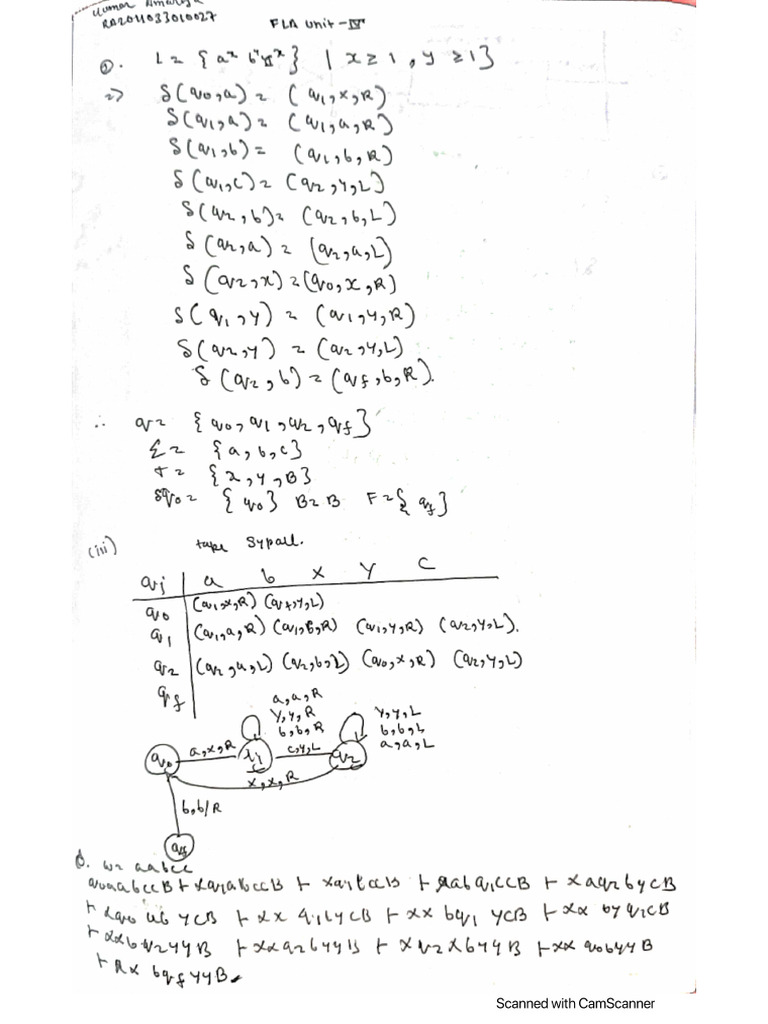 Kumar
RA2011033010027
FLA Unit-IV
L = { a^x b^y c^x } | x ≥ 1, y ≥ 1}
=> δ(q0,a) = (q1,x,R)
δ(q1,a) = (q1,a,R)
δ(q1,b) = (q1,b,R)
δ(q1,c) = (q2,y,L)
δ(q2,b) = (q2,b,L)
δ(q2,a) = (q2,a,L)
δ(q2,x) = (q0,x,R)
δ(q1,y) = (q1,y,R)
δ(q2,y) = (q2,y,L)
δ(q2,b) = (qf,b,R).
∴ q = {q0, q1, q2, qf}
Σ = {a, b, c}
T = {x, y, B}
q0 = {q0} B = B F = {qf}
(iii) take
qj | a b x y c
q0 (q1,x,R) (qf,y,L)
q1 (q1,a,R) (q1,b,R) (q1,y,R) (q2,y,L).
q2 (q2,a,L) (q2,b,L) (q0,x,R) (q2,y,L)
qf
a,a,R
y,y,R
b,b,R
y,y,L
b,b,L
a,a,L
q0 a,x,R q1 c,y,L q2
x,x,R
b,b/R
qf
w = aabcc
q0aabccB ⊢ xq1abccB ⊢ ⊢ xabq1ccB ⊢ xaq2bycB
⊢ xq0abycB ⊢ xxq1bycB ⊢ xxbq1ycB ⊢ xxbyq1cB
⊢ xxbq2yyB ⊢ xxq2byyB ⊢ xq2xbyyB ⊢ xxq0byyB
⊢ xxbqfyyB
Scanned with CamScanner